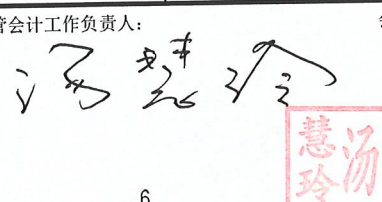 管会计工作负责人：
汤慧玲
汤慧玲
6